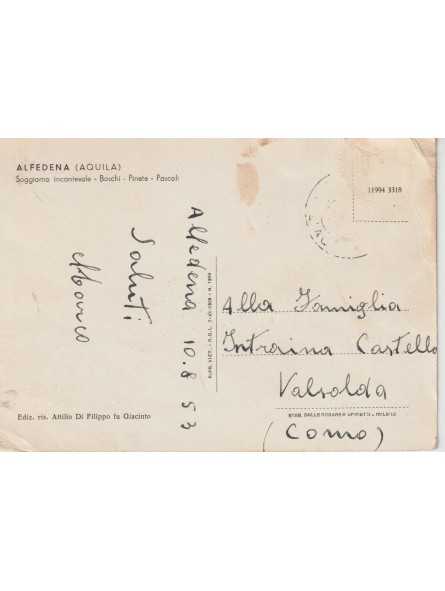 ALFEDENA (AQUILA)
Soggiorno incantevole - Boschi - Pinete - Pascoli
11994 3318
Alfedena 10.8.53
Saluti
Alla Famiglia
Intraina Castello
Valsolda
(Como)
Ediz. ris. Attilio Di Filippo fu Giacinto